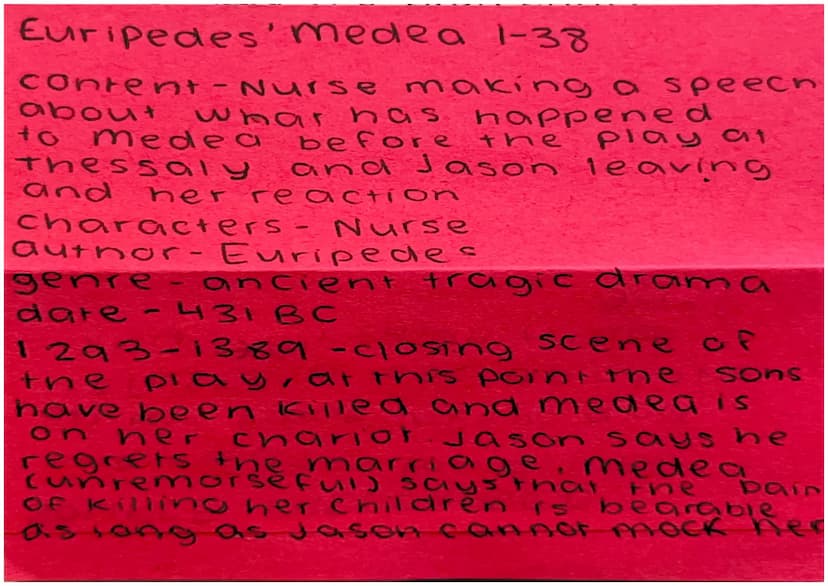 Euripedes' medea 1-38
content - Nurse making a speech
about what has happened
to medea before the play at
Thessaly and Jason leaving
and her reaction
characters - Nurse
author - Euripedes
genre - ancient tragic drama
date - 431 BC
1293-1389 - closing scene of
the play, at this point the sons
have been killed and medea is
on her chariot Jason says he
regrets the marriage. Medea
(unremorseful) says that the pain
of killing her children is bearable
as long as Jason cannot mock her